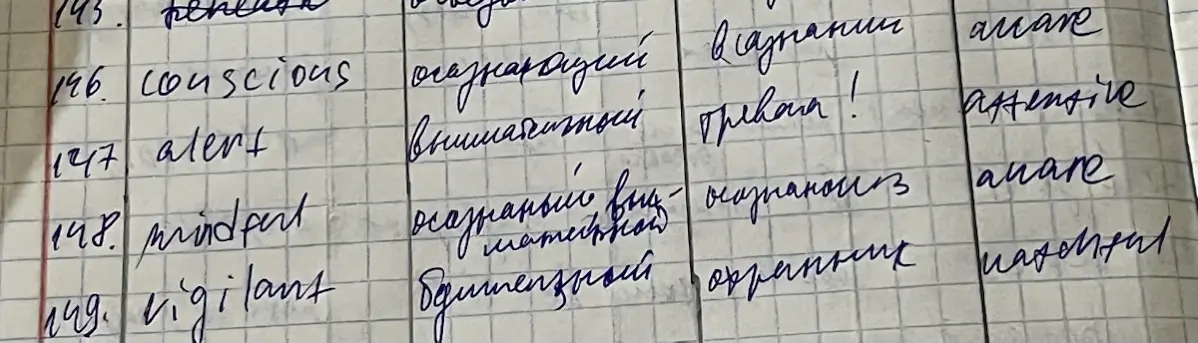 145.
146. conscious осознающий в сознании aware
147 alert внимательный тревога! attentive
148. mindful осознаный вни-мательный осознаность aware
149. vigilant бдительный охранник watchful